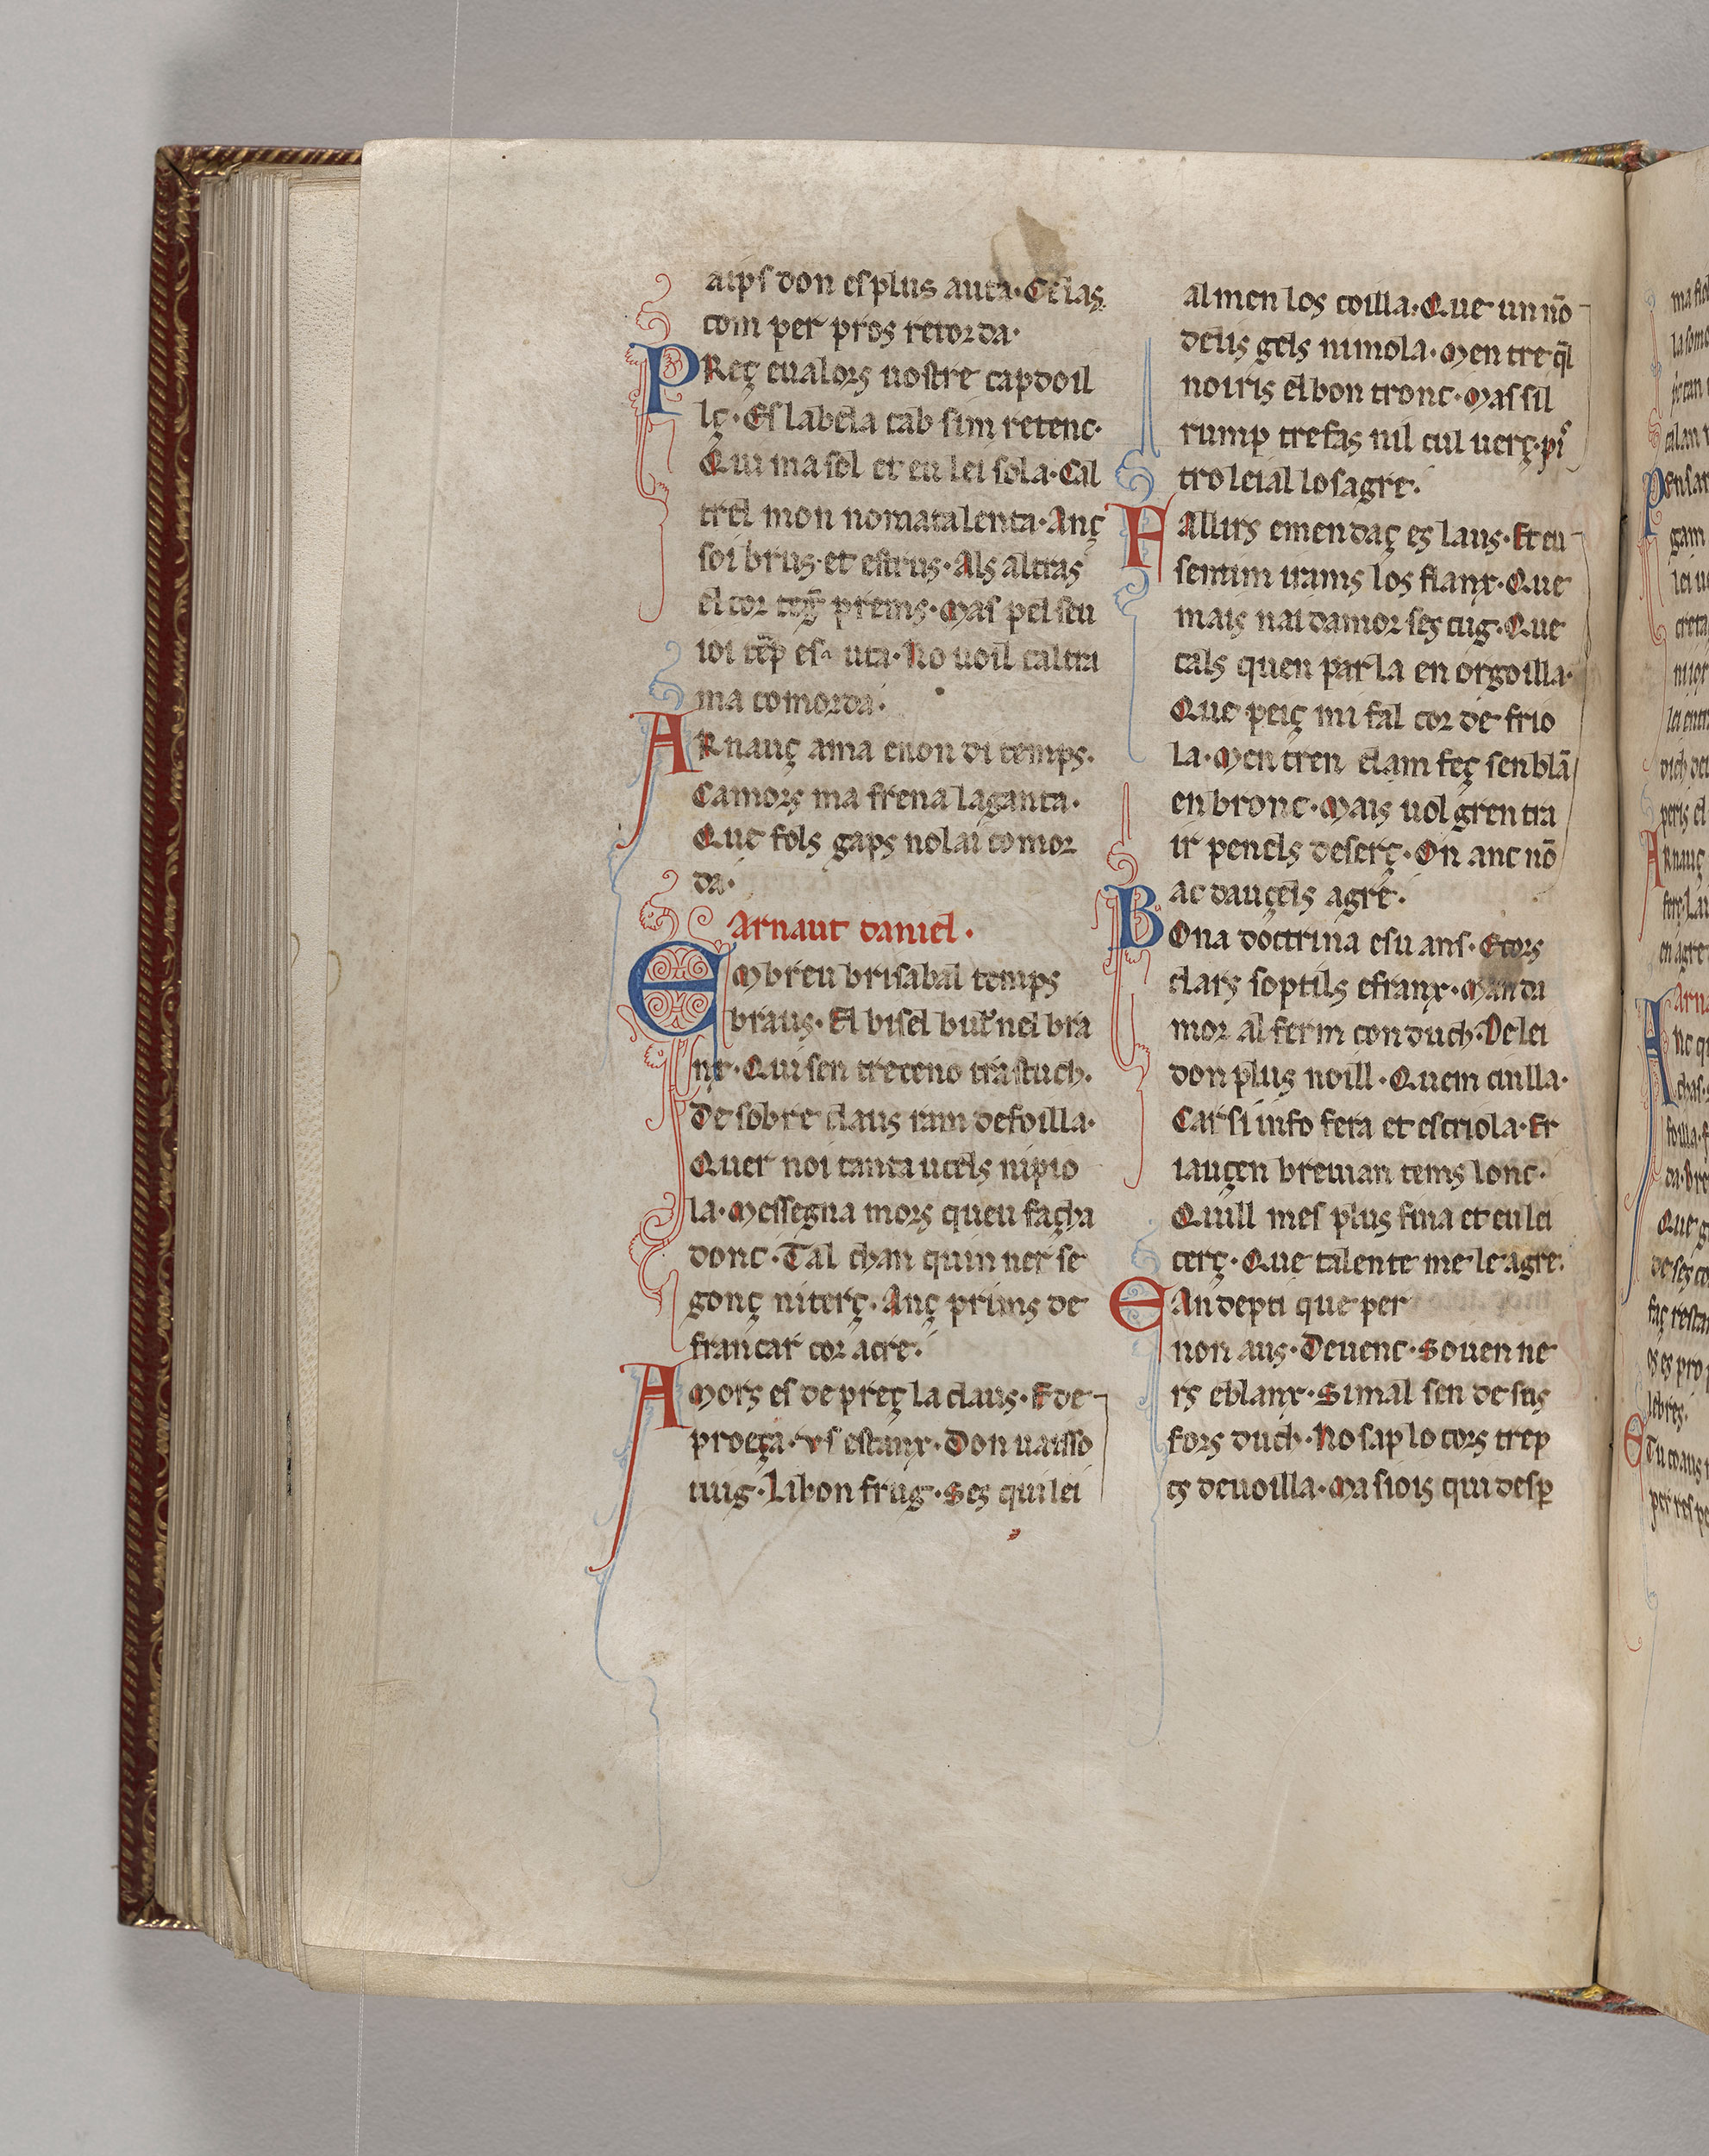 aips don es plus auta. Celas
com per pros retorda.
PReç eualors uostre capdoil
lç. Es labela cab sim retenc.
Qui ma sol et eu lei sola. Cal
trel mon nomatalenta. Anç
soi brus. et estrus. Als altras
el cor teg prems. Mas pel seu
ma comorda.
ARnauç ama enon di temps.
Camors ma frena laganta.
Que fols gaps nolai comor
da.
Arnaut daniel.
EMbreu brisabal temps
braus. El bisel butnel bra
nx. Qui sen treceno trastuch.
De sobre claus ram defoilla.
Quer noi canta ucels nipio
la. Messegna mors queu facha
donc. Tal chan quin ner se
gonç niterç. Anç prims de
francar cor acre.
AMors es de preç la claus. E de
proeça. vs estanx. Don naisso
iuig. Li bon frug. Ses qui lei
almen los coilla. Que un nō
delis gels niniola. Men tre ql̄
noiris el bon tronc. Mas sil
rump trefas nil cul uerç. pi
tro leial losagre.
FAllirs emendaç es laus. Et eu
sentim irams los flanx. Que
mais nai damor ses cug. Que
tals quen parla en orgoilla.
Que peiç mi fal cor de frio
la. Men tren elam feç senblā
en bronc. Mais uolgren tra
ir penels deserç. On anc nō
ac dauçels agre.
BOna doctrina esuans. Ecors
clars soptils efranx. Manda
mor al ferm conduch. De lei
don plus noill. Quem cuilla.
Car si info fera et escriola. Er
iauçen breuian tems lonc.
Quill mes plus fina et eu lei
cerç. Que talente meleagre.
EAn depti que per
non aus. Deuenc. Souen ne
rs eblanx. Si mal sen de seis
fors duch. No sap lo cors trep
es deuoilla. Ma siois qui desp